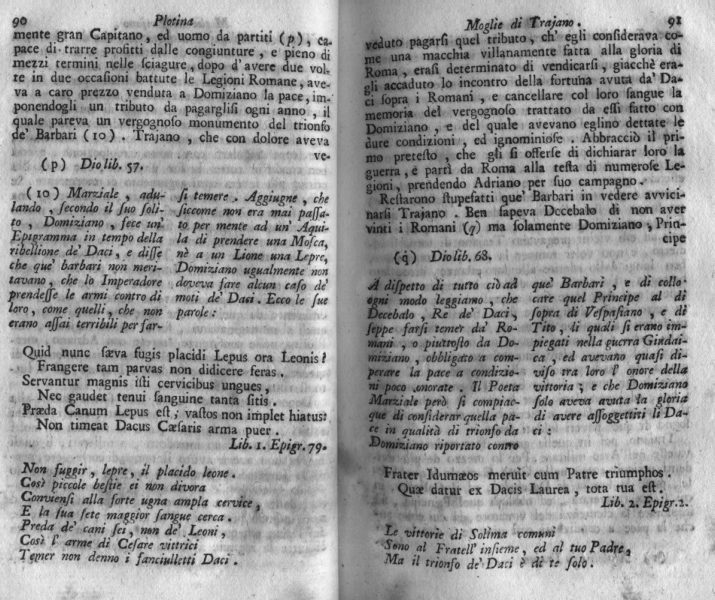 90 Plotina
mente gran Capitano, ed uomo da partiti (p), ca-
pace di trarre profitti dalle congiunture, e pieno di
mezzi termini nelle sciagure, dopo d' avere due vol-
te in due occasioni battute le Legioni Romane, ave-
va a caro prezzo venduta a Domiziano la pace, im-
ponendogli un tributo da pagarglisi ogni anno, il
quale pareva un vergognoso monumento del trionfo
de' Barbari (10). Trajano, che con dolore aveva
ve-
(p) Dio lib. 57.
(10) Marziale, adu-
lando, secondo il suo soli-
to, Domiziano, fece un'
Epigramma in tempo della
ribellione de' Daci, e disse
che que' barbari non meri-
tavano, che lo Imperadore
prendesse le armi contro di
loro, come quelli, che non
erano assai terribili per far-
si temere. Aggiugne, che
siccome non era mai passa-
to per mente ad un' Aqui-
la di prendere una Mosca,
nè a un Lione una Lepre,
Domiziano ugualmente non
doveva fare alcun caso de'
moti de' Daci. Ecco le sue
parole:
Quid nunc sæva fugis placidi Lepus ora Leonis?
Frangere tam parvas non didicere feras.
Servantur magnis isti cervicibus ungues,
Nec gaudet tenui sanguine tanta sitis.
Præda Canum Lepus est; vastos non implet hiatus:
Non timeat Dacus Cæsaris arma puer.
Lib. 1. Epigr. 79.
Non fuggir, lepre, il placido leone.
Così piccole bestie ei non divora
Conviensi alla forte ugna ampla cervice,
E la sua sete maggior sangue cerca.
Preda de' cani sei, non de' Leoni,
Così l' arme di Cesare vittrici
Temer non denno i fanciulletti Daci.
Moglie di Trajano. 91
veduto pagarsi quel tributo, ch' egli considerava co-
me una macchia villanamente fatta alla gloria di
Roma, erasi determinato di vendicarsi, giacchè era-
gli accaduto lo incontro della fortuna avuta da' Da-
ci sopra i Romani, e cancellare col loro sangue la
memoria del vergognoso trattato da essi fatto con
Domiziano, e del quale avevano eglino dettate le
dure condizioni, ed ignominiose. Abbracciò il pri-
mo pretesto, che gli si offerse di dichiarar loro la
guerra, e partì da Roma alla testa di numerose Le-
gioni, prendendo Adriano per suo campagno.
Restarono stupefatti que' Barbari in vedere avvici-
narsi Trajano. Ben sapeva Dcebalo di non aver
vinti i Romani (q) ma solamente Domiziano, Prin-
cipe
(q) Dio lib. 68.
A dispetto di tutto ciò ad
ogni modo leggiamo, che
Decebalo, Re de' Daci,
seppe farsi temer da' Ro-
mani, o piuttosto da Do-
miziano, obbligato a com-
perare la pace a condizio-
ni poco onorate. Il Poeta
Marziale però si compiac-
que di considerar quella pa-
ce in qualità di trionfo da
Domiziano riportato contro
que' Barbari, e di collo-
care quel Principe al di
sopra di Vespasiano, e di
Tito, li quali si erano im-
piegati nella guerra Giudai-
ca, ed avevano quasi di-
viso tra loro l' onore della
vittoria; e che Domiziano
solo aveva avuta la gloria
di avere assoggettiti li Da-
ci:
Frater Idumæos meruit cum Patre triumphos.
Quæ datur ex Dacis Laurea, tota tua est.
Lib. 2. Epigr. 2.
Le vittorie di Solima comuni
Sono al Fratell' insieme, ed al tuo Padre,
Ma il trionfo de' Daci è di te solo.